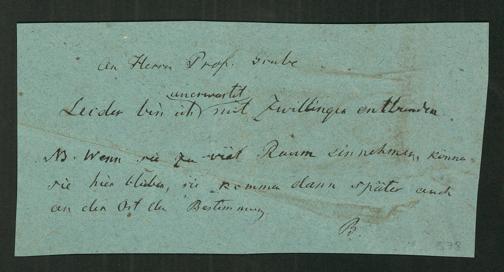 An Herrn Prof. Grube
unerwartet
Leider bin ich mit Zwillingen entbunden
NB. Wenn sie zu viel Raum einnehmen, können
sie hier bleiben, sie kommen dann später auch
an den Ort der Bestimmung
B.
578